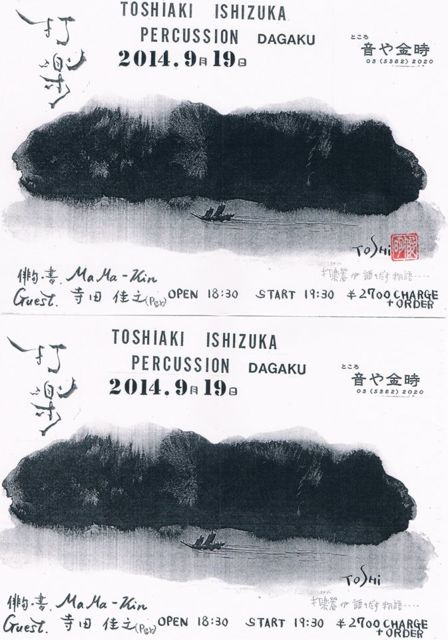 打楽
TOSHIAKI ISHIZUKA
PERCUSSION DAGAKU
2014.9月19日
ところ
音や金時
03 (5382) 2020
TOSHI
俳句・書 MaMa-Kin
打楽器が語りだす物語……
Guest. 寺田 佳之(Per) OPEN 18:30 START 19:30 ¥2700 CHARGE
+ORDER
打楽
TOSHIAKI ISHIZUKA
PERCUSSION DAGAKU
2014.9月19日
ところ
音や金時
03 (5382) 2020
TOSHI
俳句・書 MaMa-Kin
打楽器が語りだす物語……
Guest. 寺田 佳之(Per) OPEN 18:30 START 19:30 ¥2700 CHARGE
+ORDER